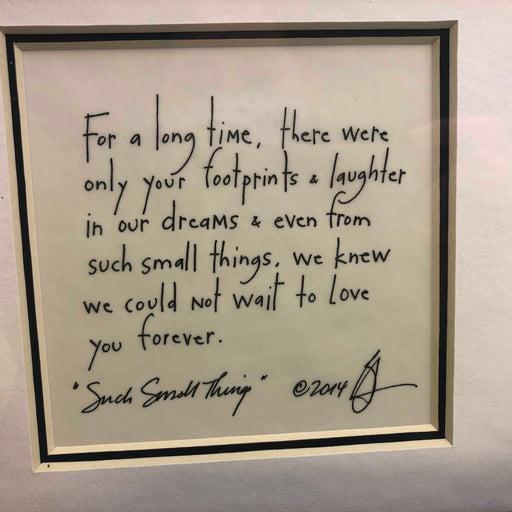 For a long time, there were
only your footprints & laughter
in our dreams & even from
such small things, we knew
we could not wait to love
you forever.
"Such Small Things" ©2014